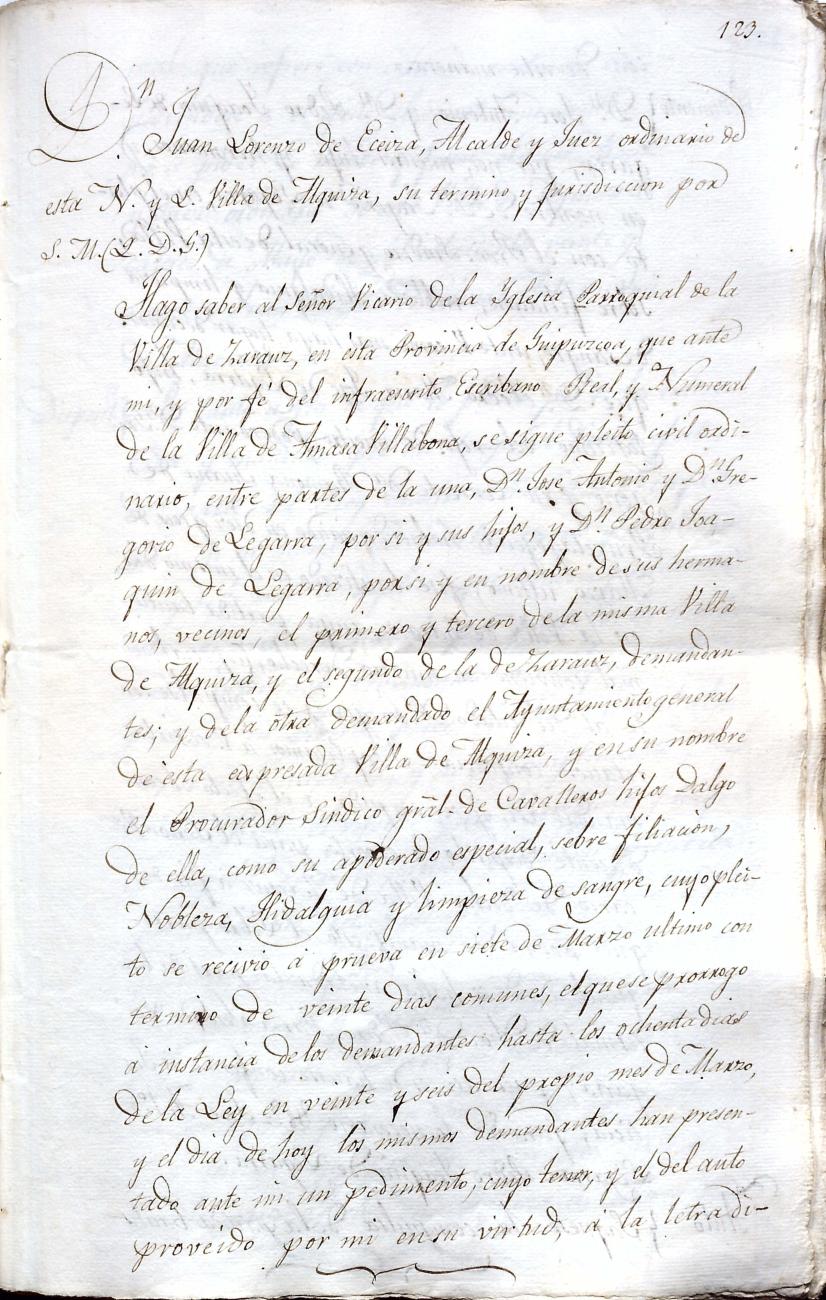 123.
Dn. Juan Lorenzo de Eceiza, Alcalde y Juez ordinario de
esta N. y L. Villa de Alquiza, su termino y Jurisdiccion por
S. M. (Q. D. G.)
Hago saber al Señor Vicario de la Yglesia Parroquial de la
Villa de Zarauz, en ésta Provincia de Guipuzcoa, que ante
mi, y por fé del infraescrito Escribano Real, y Numeral
de la Villa de Amasa Villabona, se sigue pleito civil ordi-
nario, entre partes de la una, Dn. Jose Antonio y Dn. Gre-
gorio de Legarra, por si y sus hijos, y Dn. Pedro Joa-
quin de Legarra, por si y en nombre de sus herma-
nos, vecinos, el primero y tercero de la misma Villa
de Alquiza, y el segundo de la de Zarauz, demandan-
tes; y de la otra demandado el Ayuntamiento general
de ésta expresada Villa de Alquiza, y en su nombre
el Procurador Sindico grãl. de Cavalleros hijos Dalgo
de ella, como su apoderado especial, sobre filiacion,
Nobleza, Hidalguia y limpieza de sangre, cuyo plei-
to se recivió á prueva en siete de Marzo ultimo con
termino de veinte dias comunes, el que se prorrogo
á instancia de los demandantes hasta los ochenta dias
de la Ley en veinte y seis del propio mes de Marzo,
y el dia de hoy los mismos demandantes han presen-
tado ante mi un pedimento, cuyo tenor, y el del auto
proveido por mi en su virtud, á la letra di-